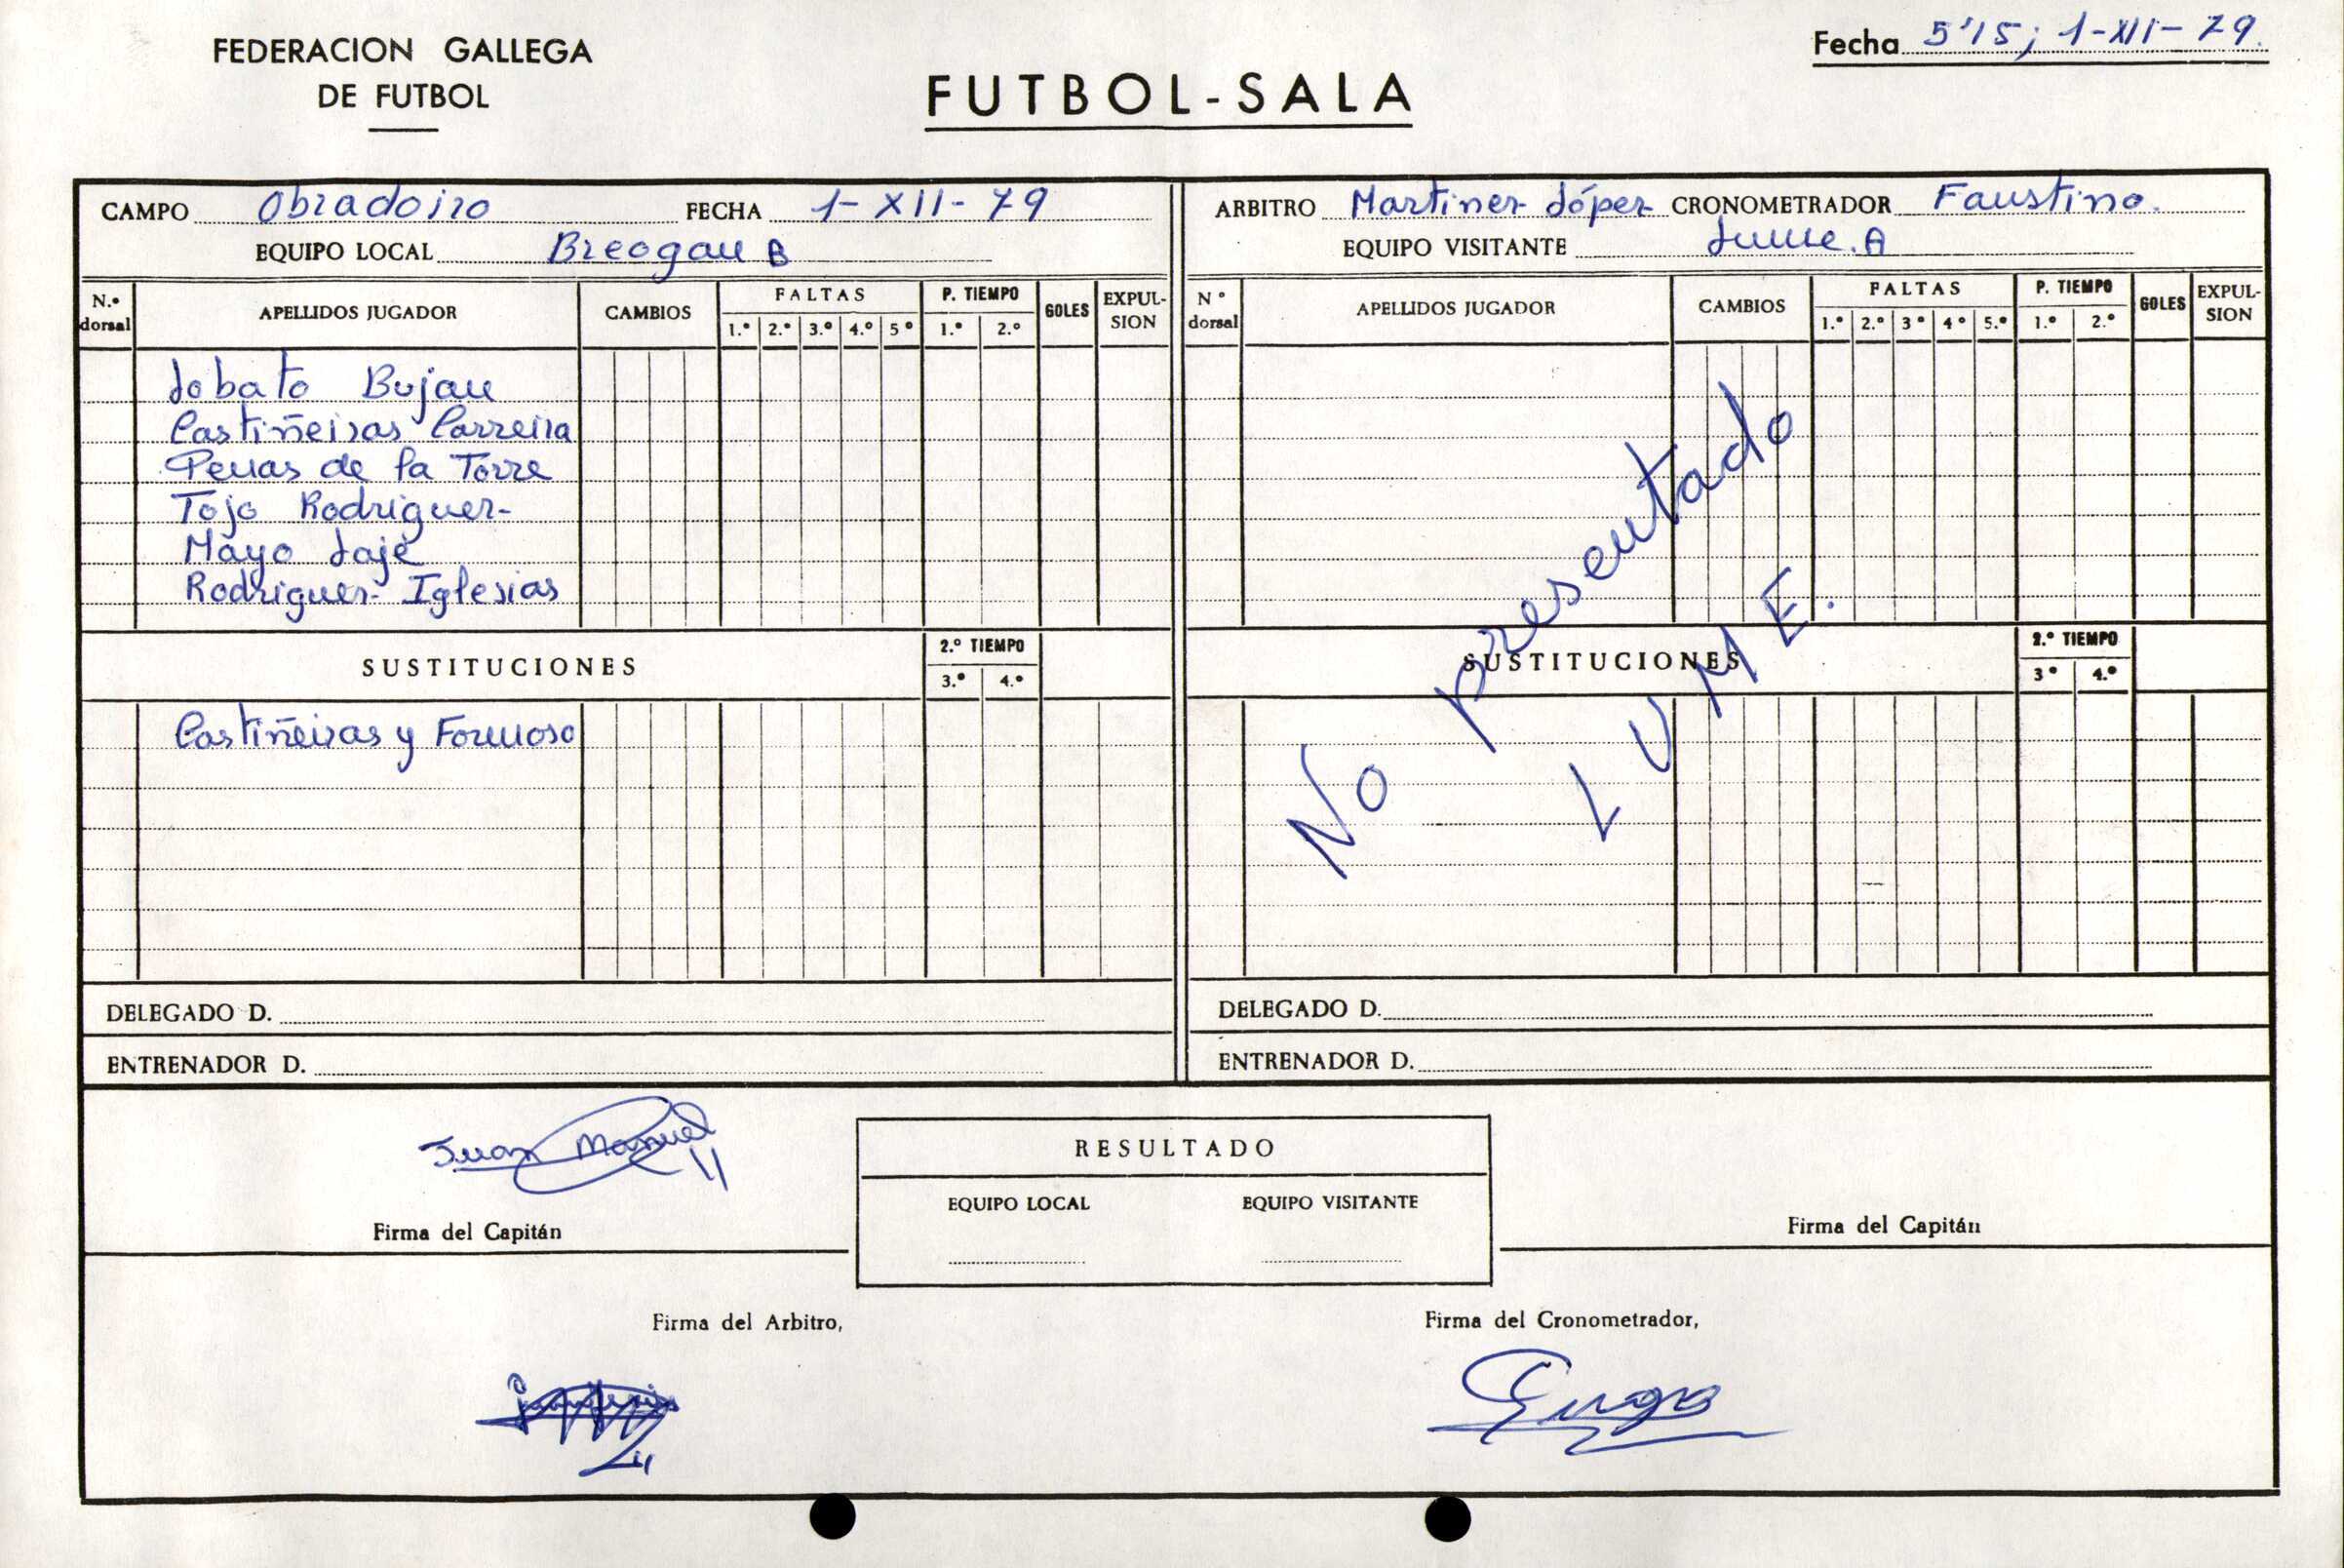 FEDERACION GALLEGA
DE FUTBOL
FUTBOL-SALA
Fecha 5'15; 1-XII-79.
CAMPO Obradoiro FECHA 1-XII-79
EQUIPO LOCAL Breogan B
ARBITRO Martinez López CRONOMETRADOR Faustino.
EQUIPO VISITANTE Lume. A
N.º dorsal APELLIDOS JUGADOR CAMBIOS FALTAS 1.º 2.º 3.º 4.º 5º P. TIEMPO 1.º 2.º GOLES EXPULSION
N º dorsal APELLIDOS JUGADOR CAMBIOS FALTAS 1.º 2.º 3º 4º 5.º P. TIEMPO 1.º 2.º GOLES EXPULSION
Lobato Bujan
Castiñeiras Carreira
Penas de la Torre
Tojo Rodriguez
Mayo Laje
Rodriguez Iglesias
No presentado
LUME.
SUSTITUCIONES 2.º TIEMPO 3.º 4.º
SUSTITUCIONES 2.º TIEMPO 3º 4.º
Castiñeiras y Formoso
DELEGADO D.
DELEGADO D.
ENTRENADOR D.
ENTRENADOR D.
Juan Manuel
Firma del Capitán
RESULTADO
EQUIPO LOCAL EQUIPO VISITANTE
Firma del Capitán
Firma del Arbitro,
Firma del Cronometrador,